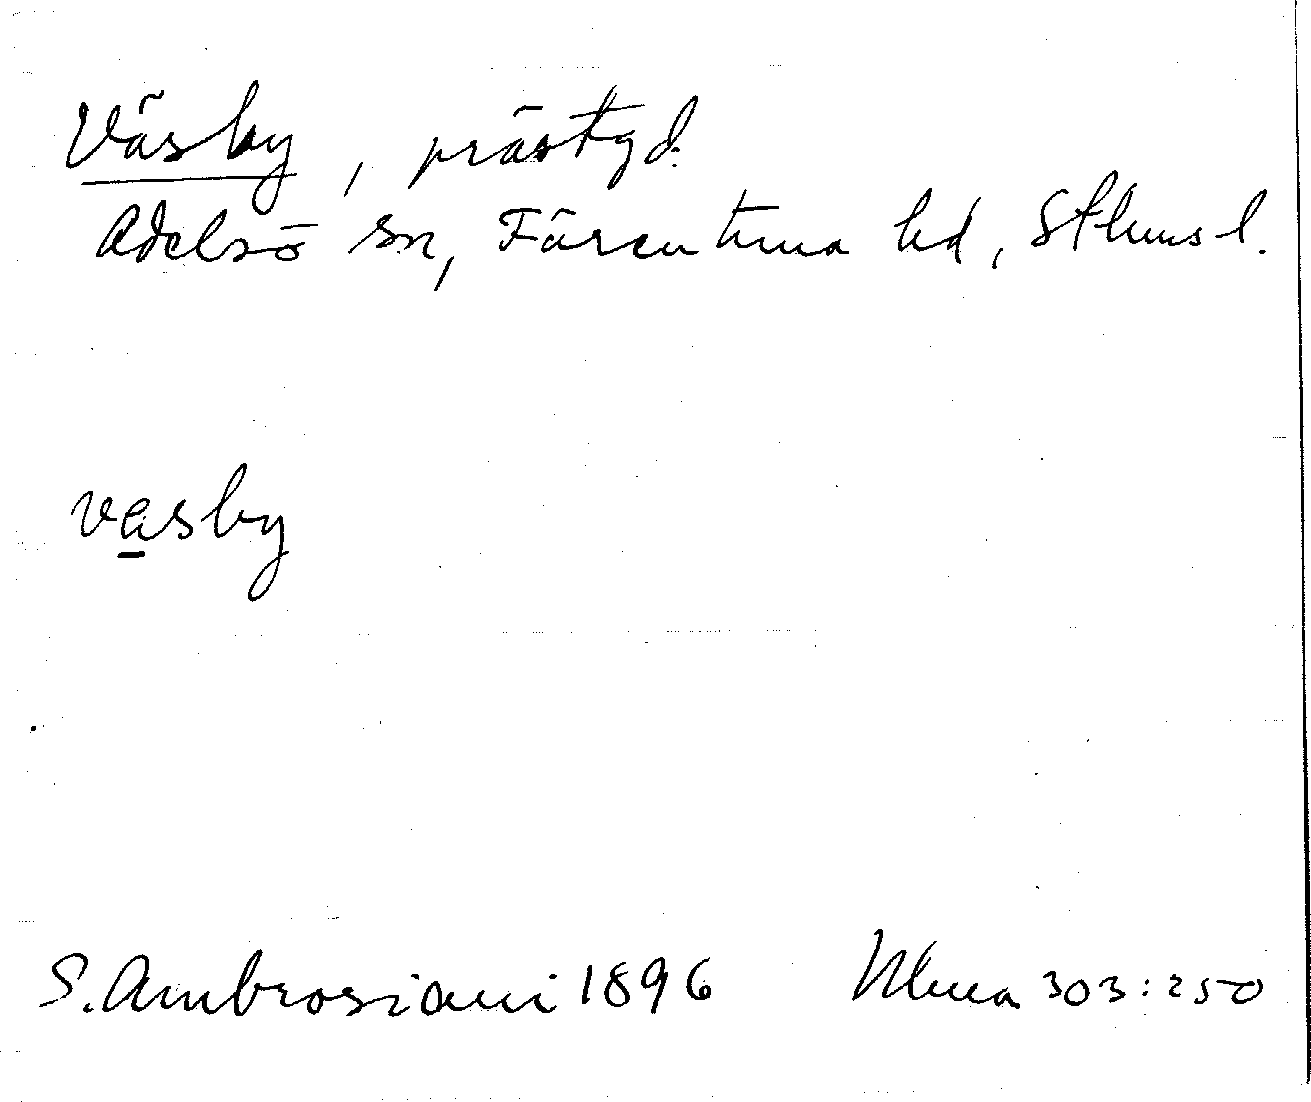 Väsby, prästgd.
Adelsö sn, Färentuna hd, Sthms l.
vasby
S. Ambrosiani 1896 Ulma 303:250